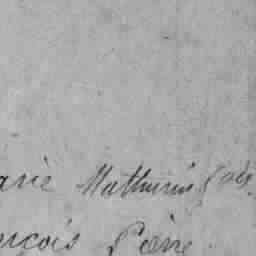 arie Mathurin
nçois Pierre